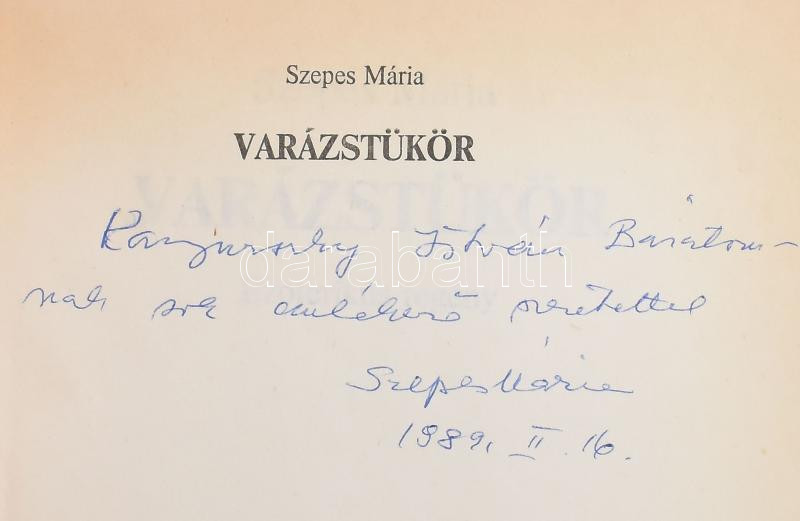 Szepes Mária
VARÁZSTÜKÖR
István Barátom-
nak sok emlékező szeretettel
Szepes Mária
1989. II. 16.
darabanth